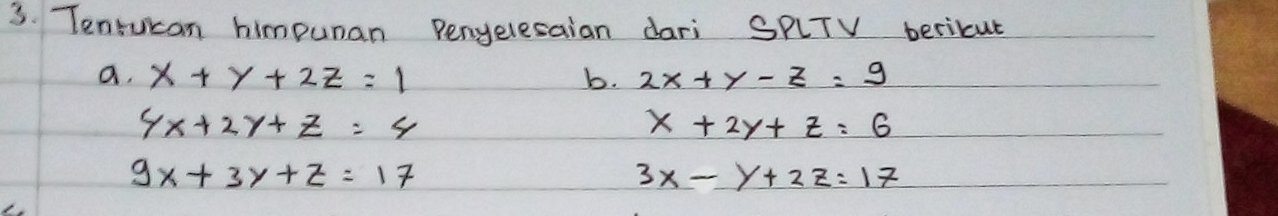 3. Tentukan himpunan Penyelesaian dari SPLTV berikut
a. x + y + 2z = 1
4x + 2y + z = 4
9x + 3y + z = 17
b. 2x + y - z = 9
x + 2y + z = 6
3x - y + 2z = 17